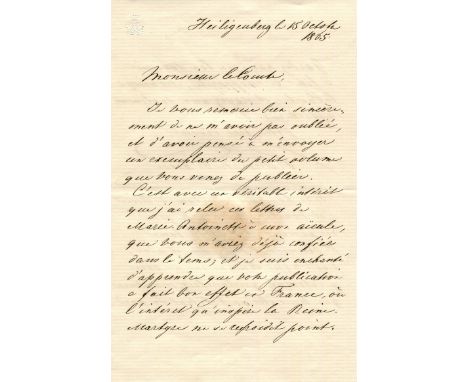 Heiligenberg le 15 Octobre
1865
Monsieur le Comte,
Je vous remercie bien sincère-
ment de ne m'avoir pas oublié,
et d'avoir pensé à m'envoyer
un exemplaire du petit volume
que vous venez de publier.
C'est avec un véritable intérêt
que j'ai relu ces lettres de
Marie Antoinette à mon aïeule,
que vous m'aviez déjà confiées
dans le tems; et je suis enchanté
d'apprendre que votre publication
a fait bon effet en France, où
l'intérêt qu'inspire la Reine
Martyre ne se refroidit point.